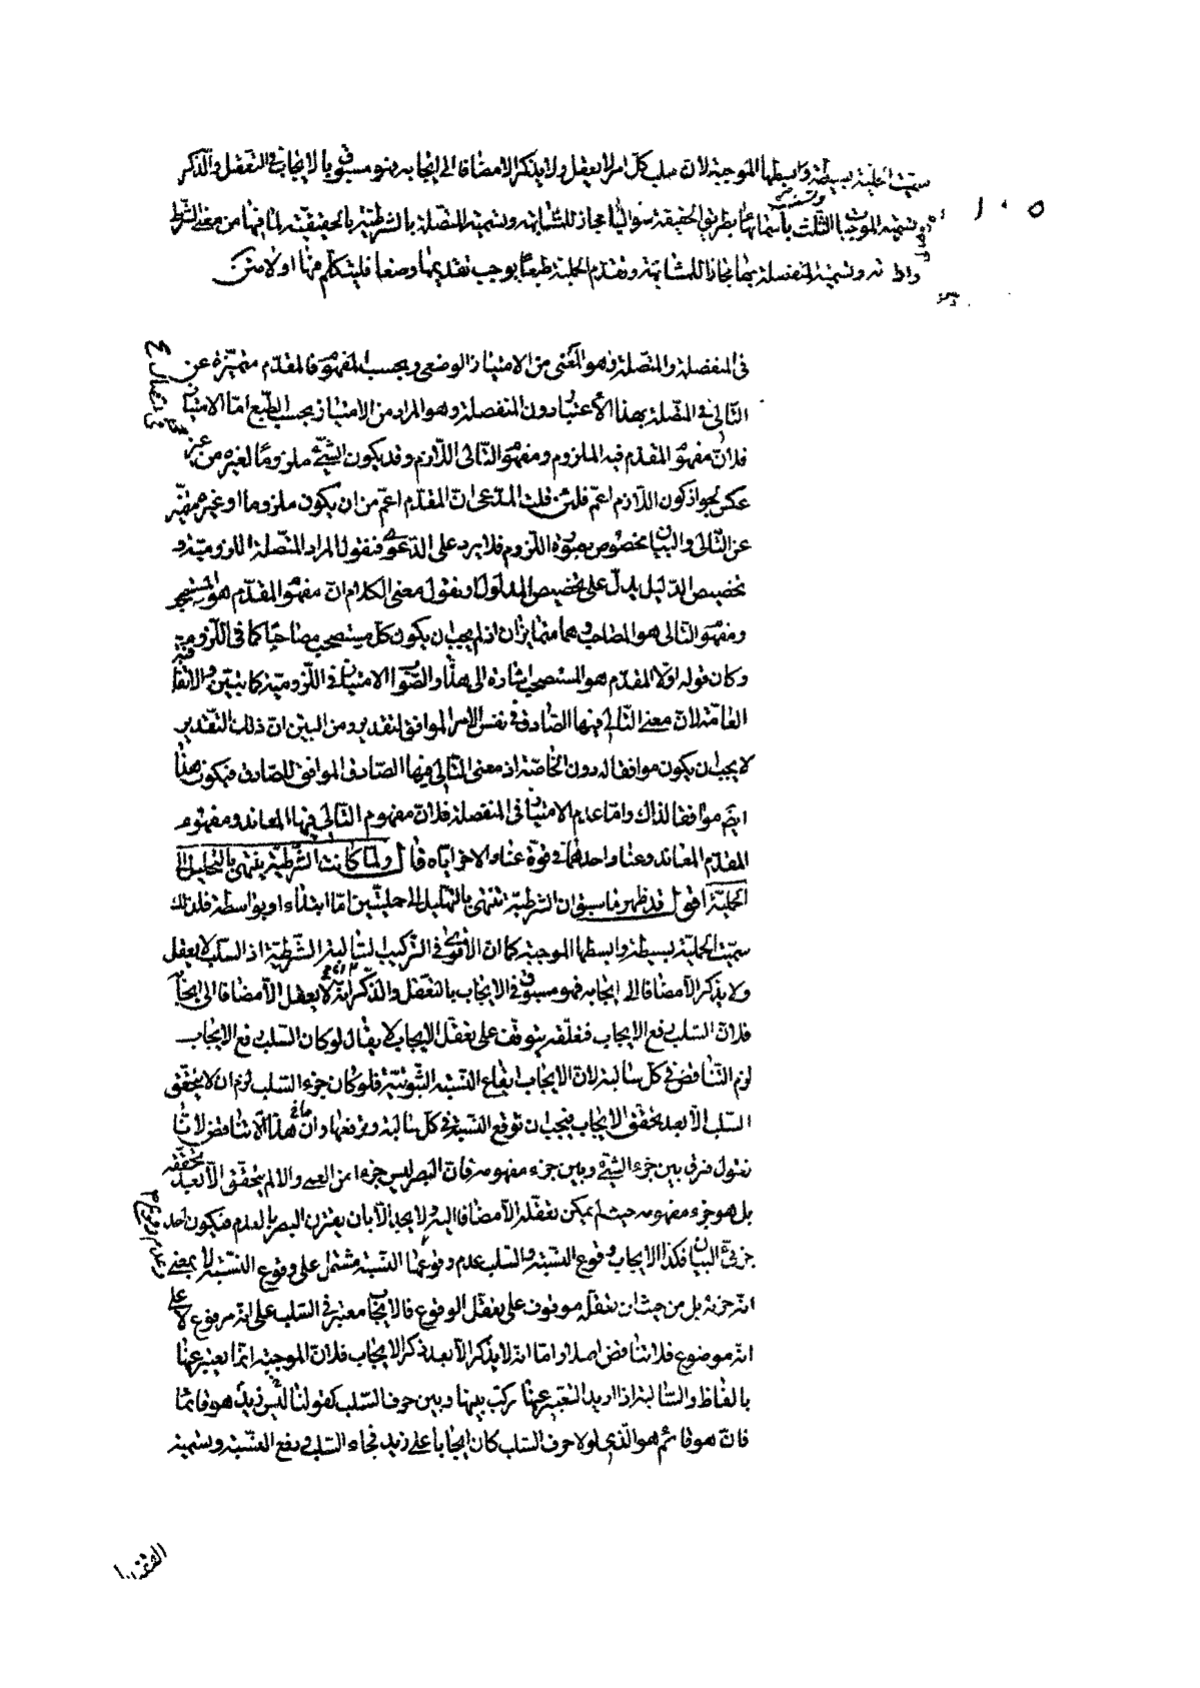 سميت الحملية بسيطة وابسطها الموجبة لان سلب كل امر لا يعقل ولا يذكر الا مضافا الى ايجابه فهو مسبوق بالايجاب في التعقل والذكر
١٠٥
وتسمية الموجبات الثلث باسمائها بطريق الحقيقة وسوالبها مجاز للمشابهة وتسمية المتصلة بالشرطية بالحقيقة لما فيها من معنى الشرط
وتسمية المنفصلة بها مجازا للمشابهة وتقدم الحملية طبعا يوجب تقديمها وضعا فليتكلم فيها اولا
في المنفصلة والمتصلة وهو المعنى من الامتياز الوضعي وبحسب المفهوم فالمقدم متميزة عن
التالي في المتصلة بهذا الاعتبار دون المنفصلة وهو المراد من الامتياز بحسب الطبع اما الامتياز
فلان مفهوم المقدم فيه الملزوم ومفهوم التالي اللازم وقد يكون الشيء ملزوما لغيره من غير
عكس لجواز كون اللازم اعم فلئن قلت المدعى ان المقدم اعم من ان يكون ملزوما او غيره متميز
عن التالي والبيان مخصوص بصورة اللزوم فلا يرد على الدعوى فنقول المراد المتصلة اللزومية و
تخصيص الدليل يدل على تخصيص المدلول او نقول معنى الكلام ان مفهوم المقدم هو المستصحب
ومفهوم التالي هو الصاحب وهما متمايزان اذ لم يجب ان يكون كل مستصحب مصاحبا كما في اللزومية
وكان قوله اولا المقدم هو المستصحب اشارة الى هذا والصواب الامتياز في اللزومية كما بيتين والاتفاقية
العامة لان معنى التالي فيها الصادق في نفس الامر الموافق لتقدير ومن البين ان ذلك التقدير
لا يجب ان يكون موافقا له دون الخاصة اذ معنى التالي فيها الصادق الموافق للصادق فيكون هذا
ايضا موافقا لذاك واما عدم الامتياز في المنفصلة فلان مفهوم التالي فيها المعاند ومفهوم
المقدم المعاند وعناد احدهما في قوة عناد الاخر اياه قال ولما كانت الشرطية ينتهي بالتحليل الى
الحملية اقول قد ظهر فيما سبق ان الشرطية تنتهي بالتحليل الى حمليتين اما ابتداء او بواسطة فلذلك
سميت الحملية بسيطة وابسطها الموجبة كما ان الاقوى في التركيب لسالبة الشرطية اذ السلب لا يعقل
ولا يذكر الا مضافا الى ايجابه فهو مسبوق في الايجاب بالتعقل والذكر انه لا يعقل الا مضافا الى ايجاب
فلان السلب رفع الايجاب فتعلقه يتوقف على تعقل الايجاب لا يقال لو كان السلب رفع الايجاب
لزم التناقض في كل سالبة لان الايجاب ايقاع النسبة الثبوتية فلو كان جزء السلب لزم ان لا يتحقق
السلب الا بعد تحقق الايجاب فيجب ان توقع النسبة في كل سالبة وترفعها وان هذا الا تناقض لانا
نقول فرق بين جزء الشيء وبين جزء مفهومه فان البصر ليس جزءا من العمى والا لم يتحقق الا بعد تحققه
بل هو جزء مفهومه حيث لم يمكن تعقله الا مضافا اليه ولا يحد الا بان يقترن البصر بالعدم فيكون احد
جزئي البيان فكذا الايجاب وقوع النسبة والسلب عدم وقوعها النسبة مشتمل على وقوع النسبة لا بمعنى
انه جزئه بل من حيث ان تعقله موقوف على تعقل الوقوع فالايجاب معتبر في السلب على انه مرفوع لا على
انه موضوع فلا تناقض اصلا واما انه لا يذكر الا بعد ذكر الايجاب فلان الموجبة انما يعبر عنها
بالفاظ والسالبة اذا اريد التعبير عنها تركب بينها وبين حرف السلب كقولنا ليس زيد هو قائما
فان هو قائم هو الذي لولا حرف السلب كان ايجابا على زيد فجاء السلب في رفع النسبة وتسمية